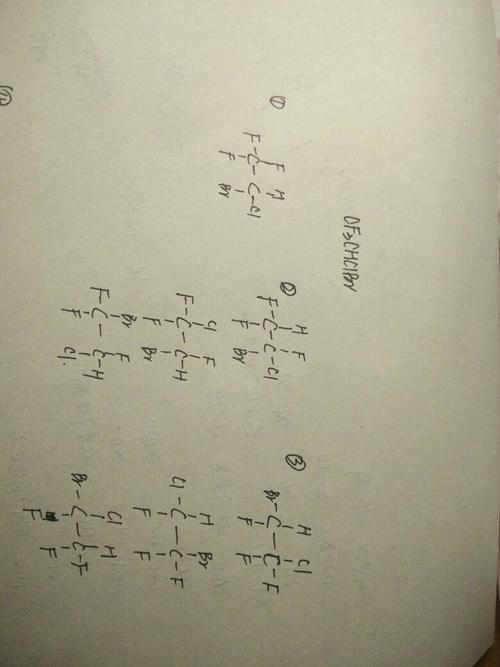 CF₃CHClBr
①
F H
F-C-C-Cl
F Br
②
H F
F-C-C-Cl
F Br
Cl F
F-C-C-H
F Br
Br F
F-C-C-H
F Cl
③
H Cl
Br-C-C-F
F F
H Br
Cl-C-C-F
F F
Cl H
Br-C-C-F
F F